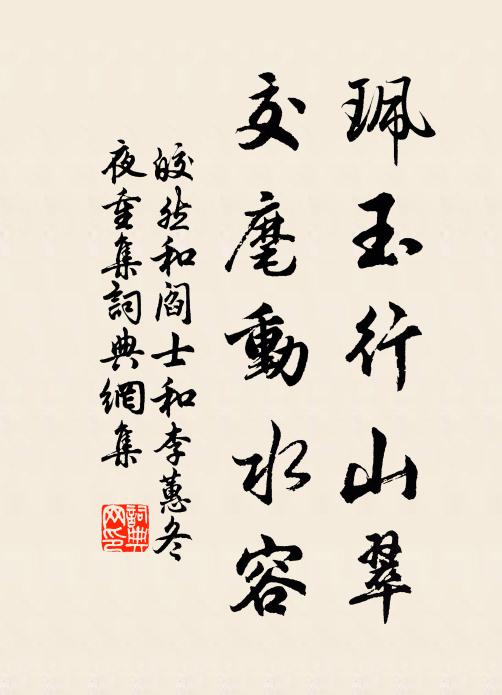 珮玉行山翠
交麾動水容
皎然和阎士和李蕙冬
夜重集詞典網集
詞典
网印